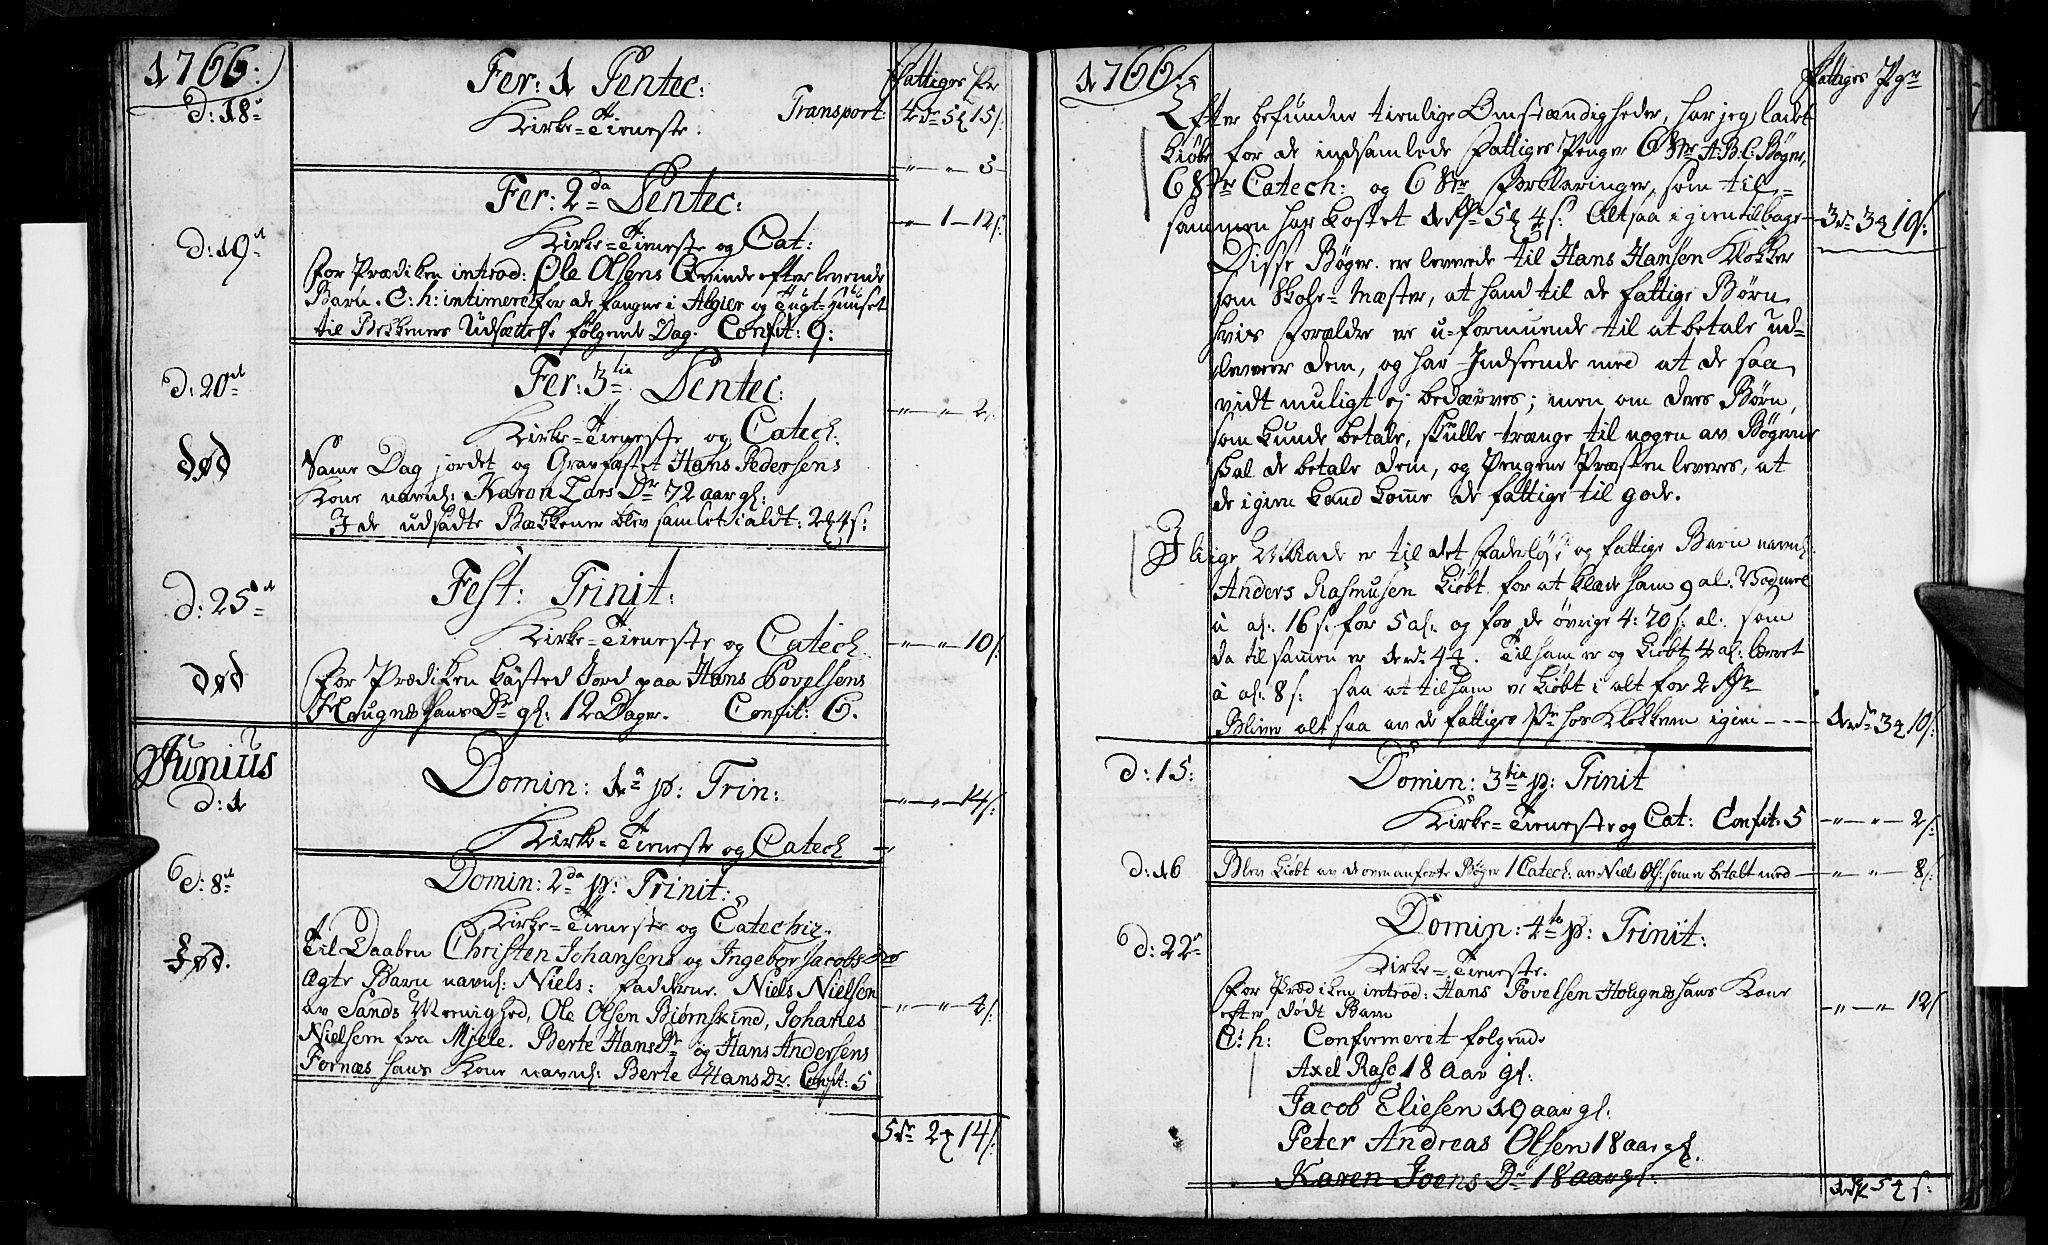 1766.
Fattiges Pr
d: 18. Fer: 1 Pentec:
Kirke=Tieneste. Transport: 4 rdr 5 15 s.
" — " — 5
Fer: 2da Pentec:
d: 19. Kirke=Tieneste og Cat: " — 1 — 12 s.
for Prædiken introd: Ole Olsens Qvinde efter levende
Barn. E: h: intimeret for de fangne i Algier og Tugt=Huuset
til Bekkeners Udsættelse følgende Dag. Confit: 9:
d: 20de Fer: 3tia Pentec:
Kirke=Tieneste og Catech. " — " — 2.
død Same Dag jordet og Gravfæstet Hans Pedersens
Kone navnl: Karen Lars Dr 72 aar gl:
I de udsadte Bækkener blev samlet i aldt: 2 4 s:
d: 25de Fest: Trinit:
Kirke=Tieneste og Catech. " — " — 10 s.
død for Prædiken kasted Jord paa Hans Povelsens
Hougnes hans Dr gl: 12 Dager. Confit: 6.
Junius
d: 1 Domin: 1a p: Trin: " — " — 14 s.
Kirke=Tieneste og Catech
d: 8de Domin: 2da p: Trinit:
Kirke=Tieneste og Catechiz.
Fød. Til Daaben Christen Johansens og Ingebor Jacobs Dr
ægte Barn navnl: Niels: Fadderne. Niels Nielsen
av Sands Menighed, Ole Olsen Biørnskind, Johanes " — " — 4 s.
Nielsen fra Mjele. Berte Hans Dr og Hans Andersens
Fornæs hans Kone navnl: Berte Hans Dr. Confit: 5
5 rdr 2 14 s.
1766.
Fattiges Pgr
Efter befundne tienlige Omstændigheder, har jeg ladet
kiøbe for de indsamlede Fattiges Penger 6 Str A.B.C. Bøger,
6 Str Catech: og 6 Str Forklaringer, som til=
sammen har kostet 1 rdr 5 4 s. Altsaa igien tilbage 3 rdr 3 10 s.
Disse Bøger er leverede til Hans Hansen Klokker
som Skole=Mæster, at hand til de fattige Børn
hvis Forældre er u=formuende til at betale ud=
leverer dem, og har Indseende med at de saa
vidt muligt ej bedærves; men om deres Børn,
som kunde betale, skulle trænge til nogen av Bøgerne
skal de betale dem, og Pengene Præsten leveres, at
de igien kand komme de fattige til gode.
I lige Maade er til det faderløse og fattige Barn navnl:
Anders Rasmusen kiøbt for at klæde ham 9 al: Vadmel
à al: 16 s. for 5 al. og for de øvrige 4: 20 s. al: som
da til sammen er 1 rdr 4. Til ham er og kiøbt 4 al: Lærret
à al: 8 s: saa at til ham er kiøbt i alt for 2
Bliver alt saa av de fattiges Pr hos Klokkeren igien — 1 rdr 3 10 s.
d: 15: Domin: 3tia p: Trinit
Kirke=Tieneste og Cat: Confit: 5 " — " — 2 s.
d: 16 Blev kiøbt av de ovenanførte Bøger 1 Catech: av Niels Ols: som er betalt med " — " — 8 s.
Domin: 4ta p: Trinit:
d: 22 Kirke=Tieneste.
for Prædiken introd: Hans Povelsen Hougnes hans Kone
efter dødt Barn " — " — 12 s
E: h: Confirmeret følgende
Axel Rasc 18 aar gl.
Jacob Eliesen 19 aar gl.
Peter Andreas Olsen 18 aar gl.
Karen Joens Dr 18 aar gl.
1 rdr 5 s: